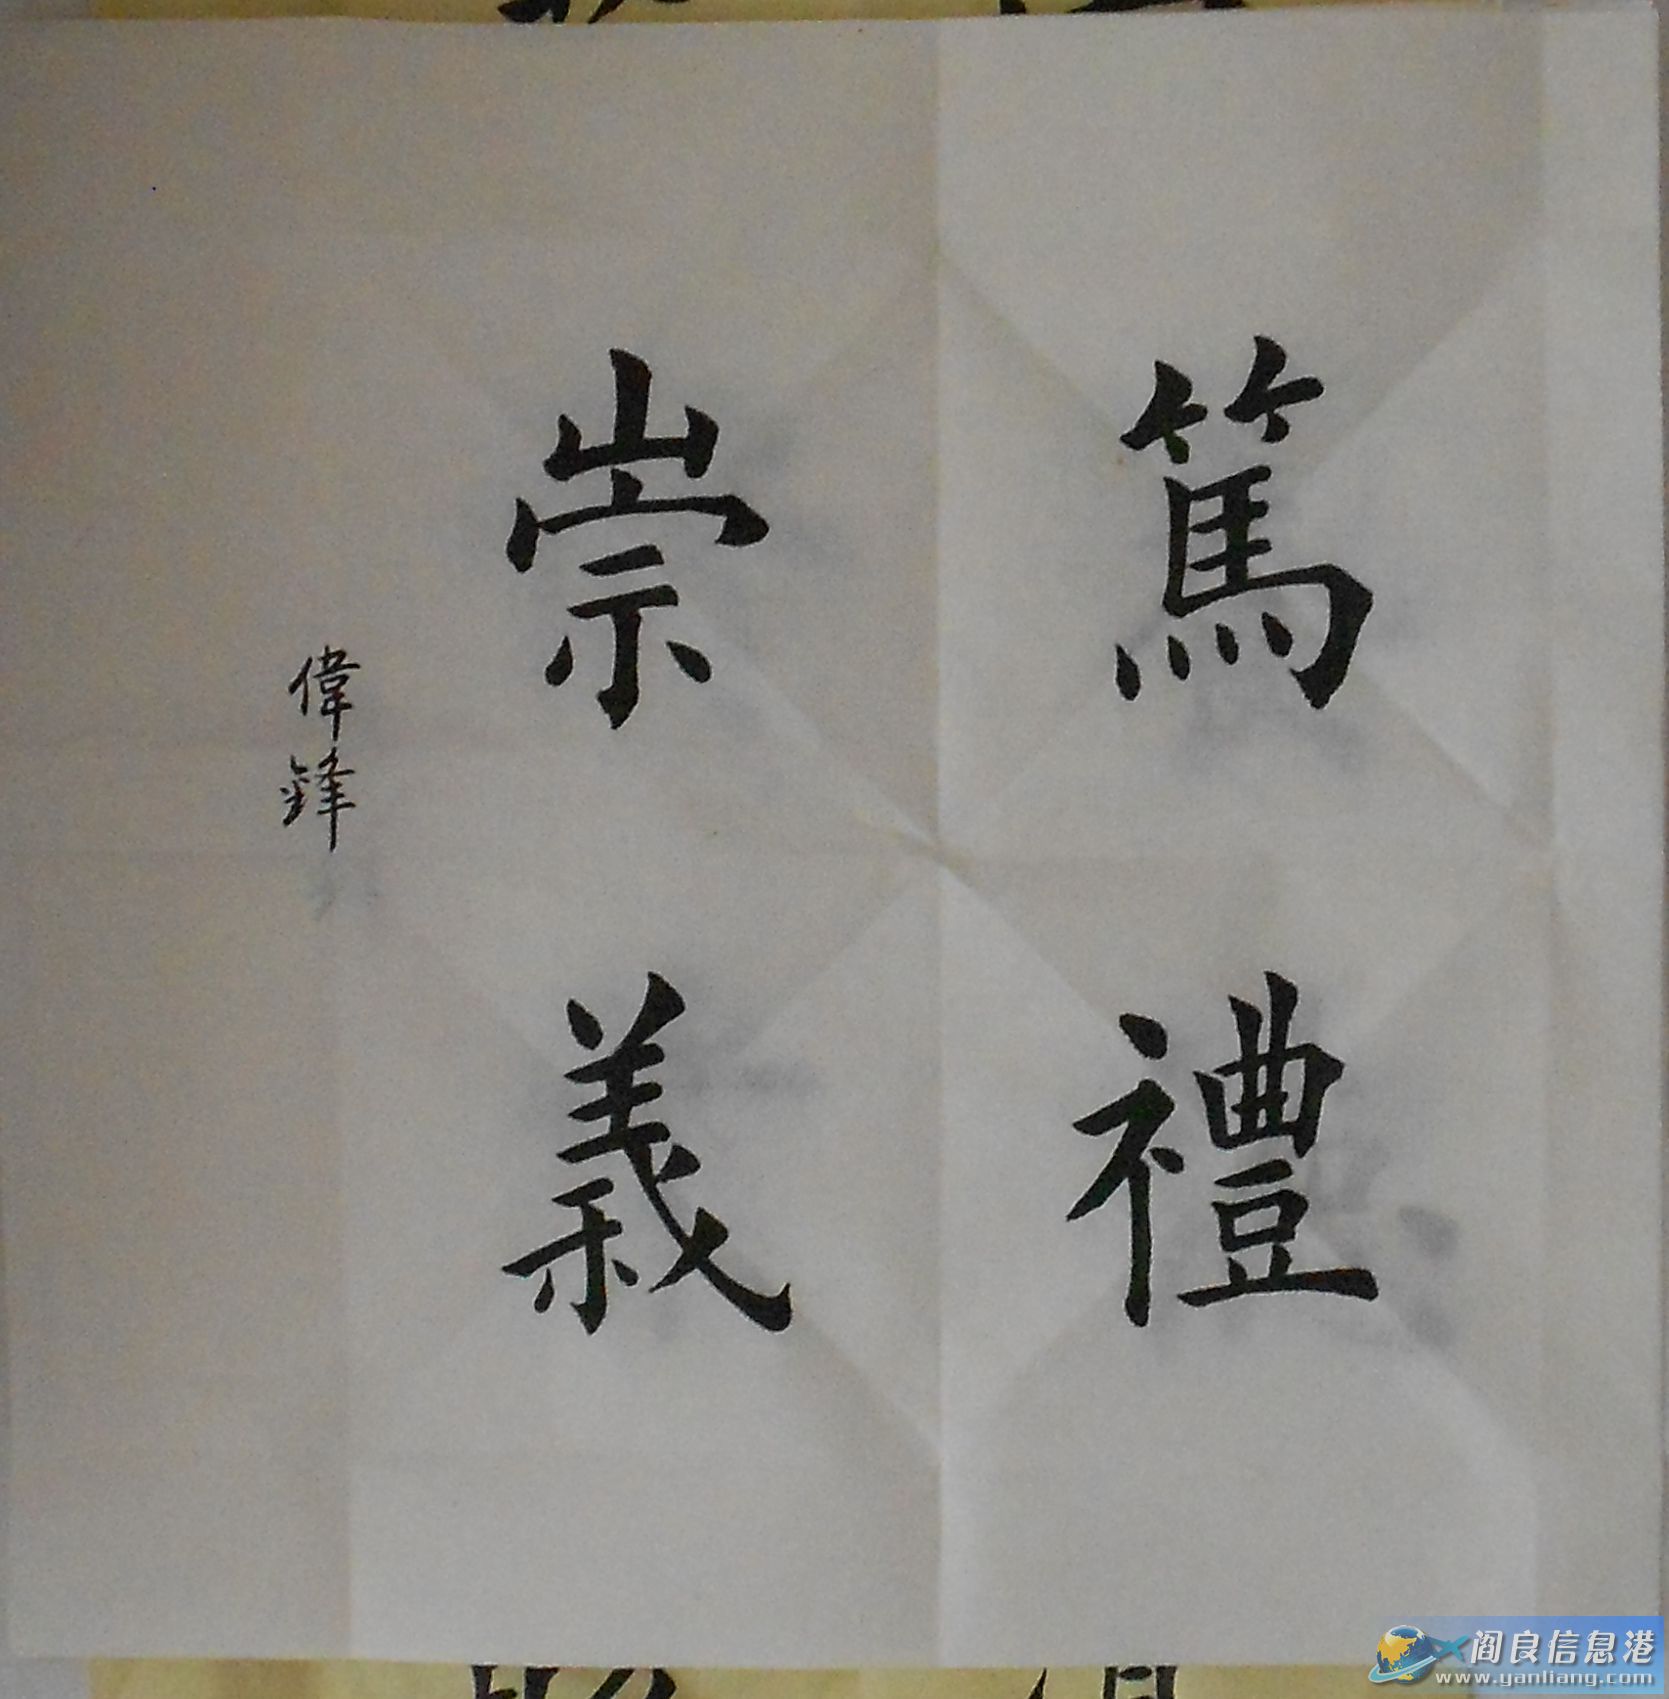 篤禮
崇義
偉鋒
阎良信息港
www.yanliang.com